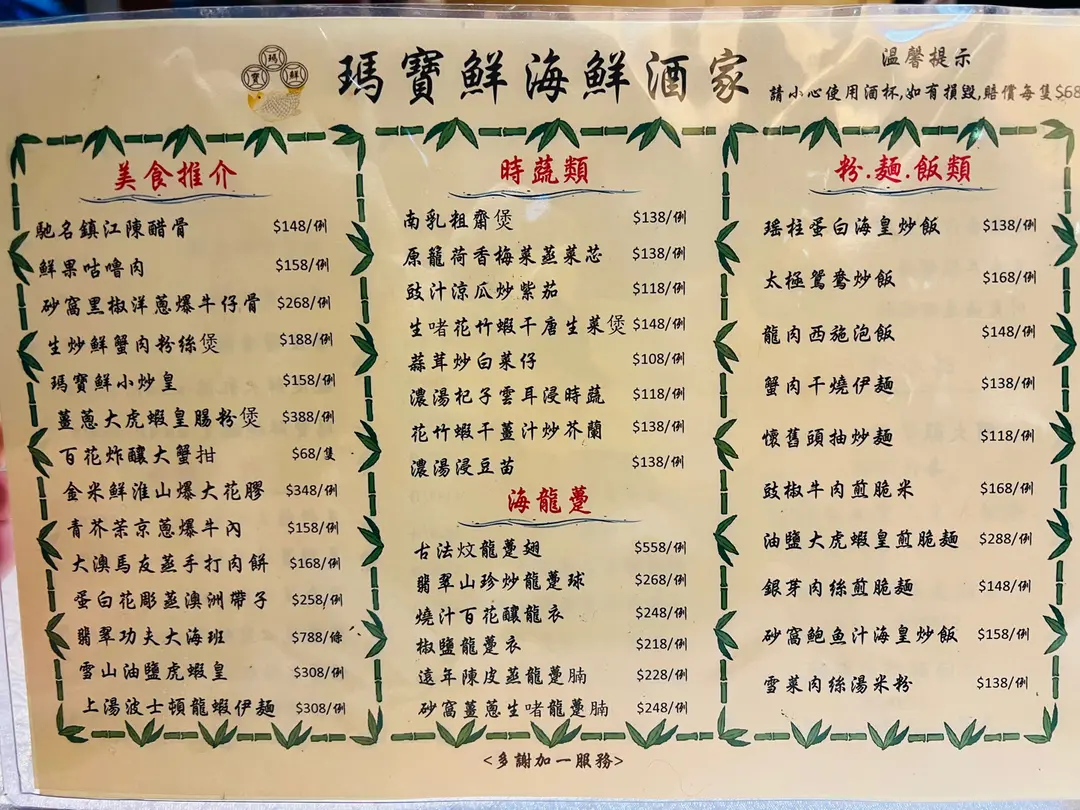 瑪寶鮮
瑪寶鮮海鮮酒家
溫馨提示
請小心使用酒杯,如有損毀,賠償每隻$68
美食推介
馳名鎮江陳醋骨 $148/例
鮮果咕嚕肉 $158/例
砂窩黑椒洋蔥爆牛仔骨 $268/例
生炒鮮蟹肉粉絲煲 $188/例
瑪寶鮮小炒皇 $158/例
薑蔥大虎蝦皇腸粉煲 $388/例
百花炸釀大蟹拑 $68/隻
金米鮮淮山爆大花膠 $348/例
青芥茉京蔥爆牛內 $158/例
大澳馬友蒸手打肉餅 $168/例
蛋白花彫蒸澳洲帶子 $258/例
翡翠功夫大海班 $788/條
雪山油鹽虎蝦皇 $308/例
上湯波士頓龍蝦伊麵 $308/例
時蔬類
南乳粗齋煲 $138/例
原籠荷香梅菜蒸菜芯 $138/例
豉汁涼瓜炒紫茄 $118/例
生啫花竹蝦干唐生菜煲 $148/例
蒜茸炒白菜仔 $108/例
濃湯杞子雲耳浸時蔬 $118/例
花竹蝦干薑汁炒芥蘭 $138/例
濃湯浸豆苗 $138/例
海龍躉
古法炆龍躉翅 $558/例
翡翠山珍炒龍躉球 $268/例
燒汁百花釀龍衣 $248/例
椒鹽龍躉衣 $218/例
遠年陳皮蒸龍躉腩 $228/例
砂窩薑蔥生啫龍躉腩 $248/例
粉.麵.飯類
瑤柱蛋白海皇炒飯 $138/例
太極鴛鴦炒飯 $168/例
龍肉西施泡飯 $148/例
蟹肉干燒伊麵 $138/例
懷舊頭抽炒麵 $118/例
豉椒牛肉煎脆米 $168/例
油鹽大虎蝦皇煎脆麵 $288/例
銀芽肉絲煎脆麵 $148/例
砂窩鮑魚汁海皇炒飯 $158/例
雪菜肉絲湯米粉 $138/例
<多謝加一服務>